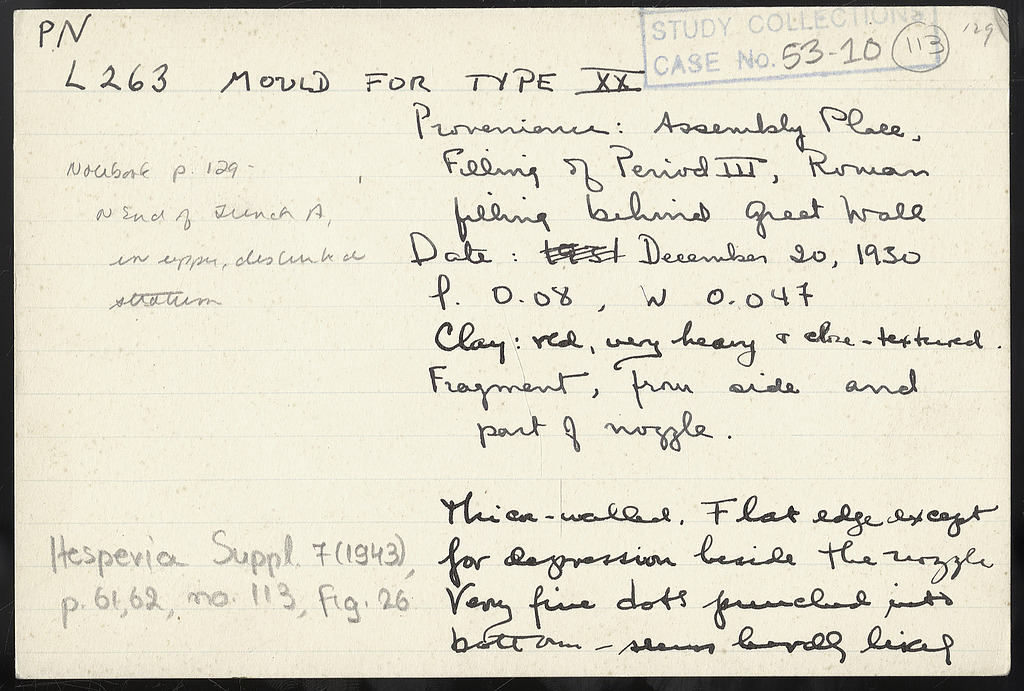 PN
STUDY COLLECTIONS
CASE No. 53-10 113 129
L 263 MOULD FOR TYPE XX
Provenience: Assembly Place,
Filling of Period III, Roman
filling behind Great Wall
Date: December 20, 1930
l. 0.08, W 0.047
Clay: red, very heavy & close-textured.
Fragment, from side and
part of nozzle.
Thick-walled. Flat edge except
for depression beside the nozzle
Very fine dots punched into
bottom – seems hardly likely
Notebook p. 129-
N End of Trench A,
in upper, disturbed
stratum
Hesperia Suppl. 7 (1943),
p. 61,62, no. 113, fig. 26